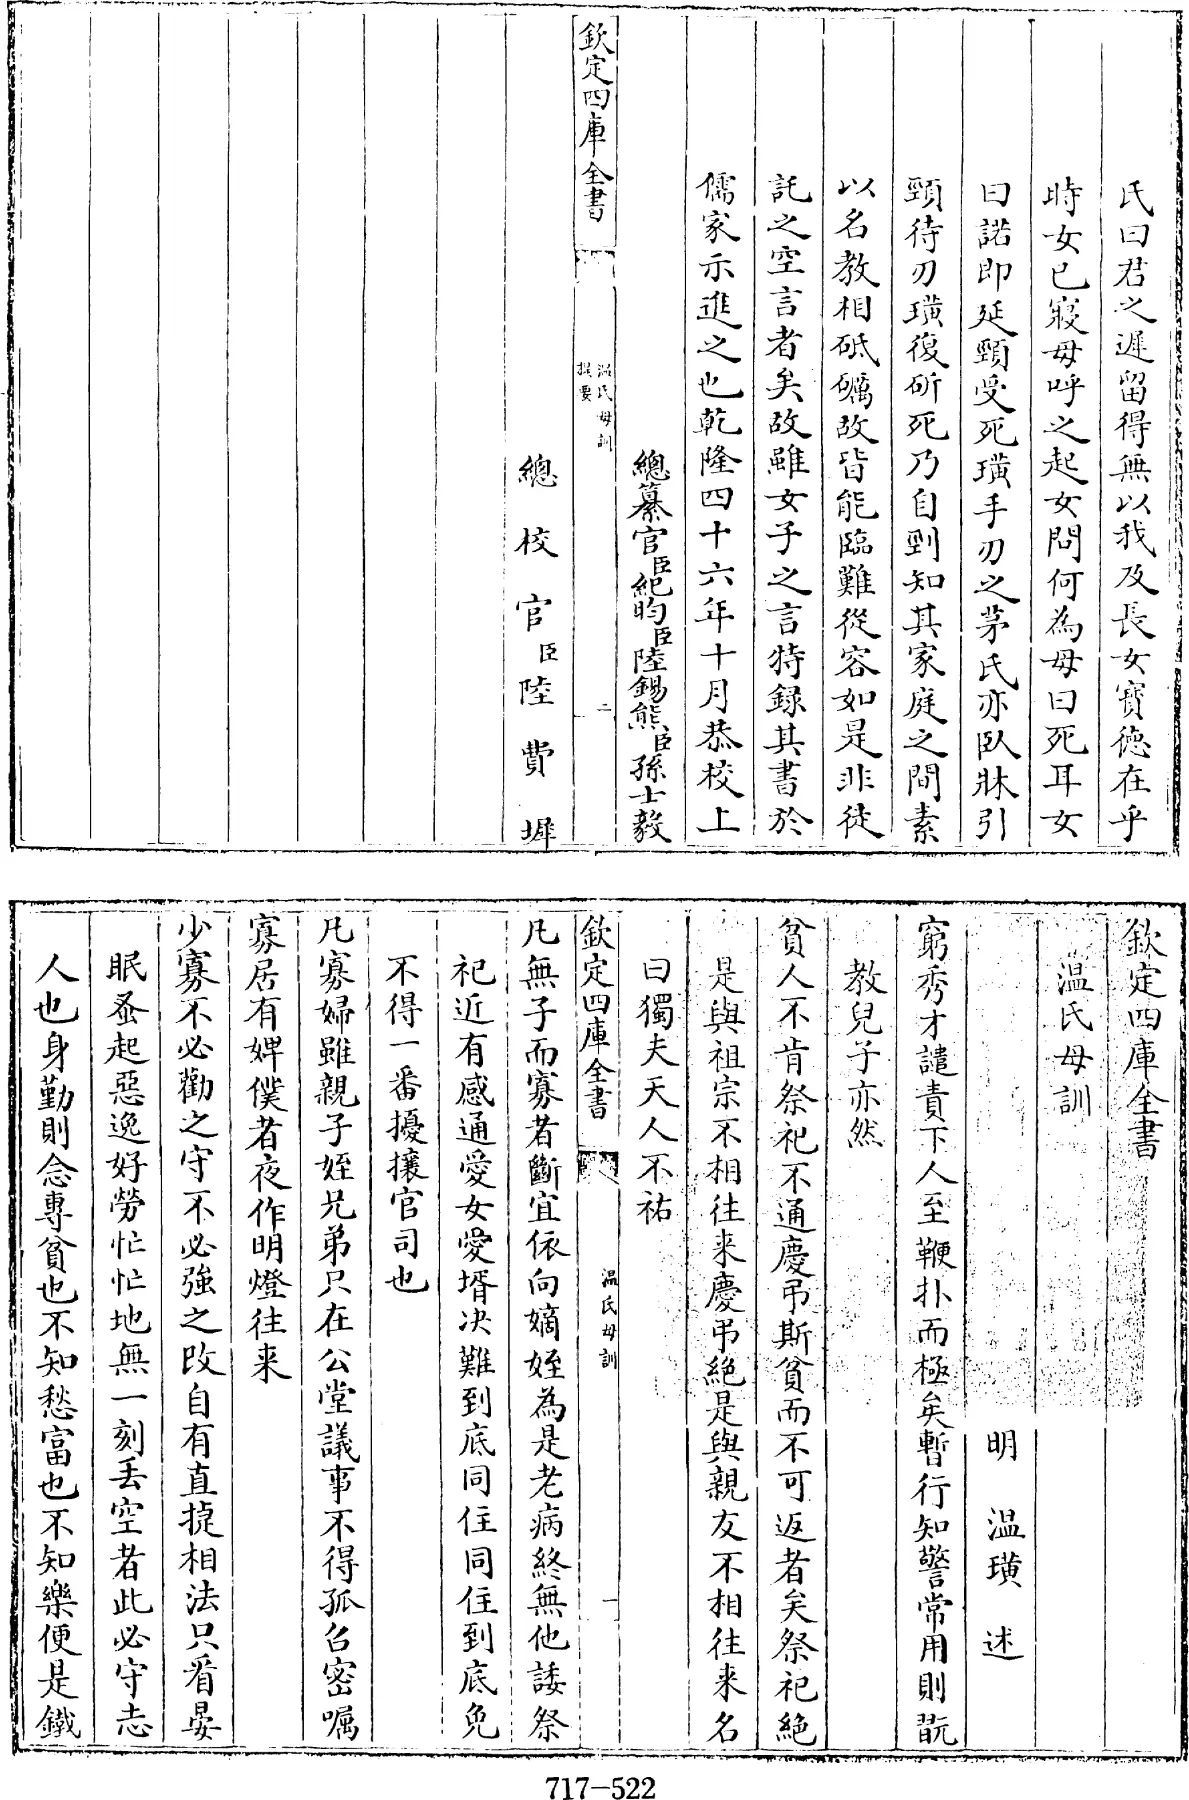 氏曰君之遲留得無以我及長女寶德在乎
時女已寢母呼之起女問何為母曰死耳女
曰諾即延頸受死璜手刃之茅氏亦臥牀引
頸待刃璜復斫死乃自剄知其家庭之間素
以名教相砥礪故皆能臨難從容如是非徒
託之空言者矣故雖女子之言特録其書於
儒家示進之也乾隆四十六年十月恭校上
總纂官臣紀昀臣陸錫熊臣孫士毅
欽定四庫全書
温氏母訓
提要
二
總校官臣陸費墀
欽定四庫全書
温氏母訓
明 温璜 述
窮秀才譴責下人至鞭扑而極矣暫行知警常用則翫
教兒子亦然
貧人不肯祭祀不通慶弔斯貧而不可返者矣祭祀絶
是與祖宗不相往来慶弔絶是與親友不相往来名
曰獨夫天人不祐
欽定四庫全書
温氏母訓
一
凡無子而寡者斷宜依向嫡姪為是老病終無他諉祭
祀近有感通愛女愛壻决難到底同住同住到底免
不得一番擾攘官司也
凡寡婦雖親子姪兄弟只在公堂議事不得孤召密嘱
寡居有婢僕者夜作明燈往来
少寡不必勸之守不必強之改自有直捷相法只看晏
眠蚤起惡逸好勞忙忙地無一刻丢空者此必守志
人也身勤則念專貧也不知愁富也不知樂便是鐵
717-522